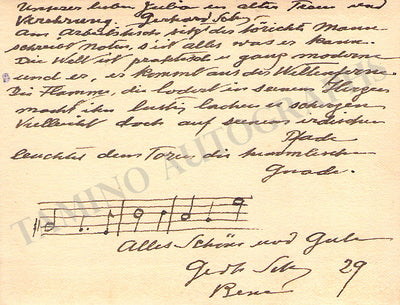 Unserer lieben Julia in alter Treue und
Verehrung. Gerhard
Am Arbeitstisch sitzt der törichte Mann
schreibt Noten, s'ist alles was er kann.
Die Welt ist praktisch u ganz modern
und er, es kommt aus
Die Flamme, die lodert in seinem Herzen
macht ihn lustig lachen u scherzen
Vielleicht doch auf seinem irdischen
Pfade
leuchtet dem Toren die himmlische
Gnade.
Alles Schöne und Gute
29
TAMINO AUTOGRAPHS